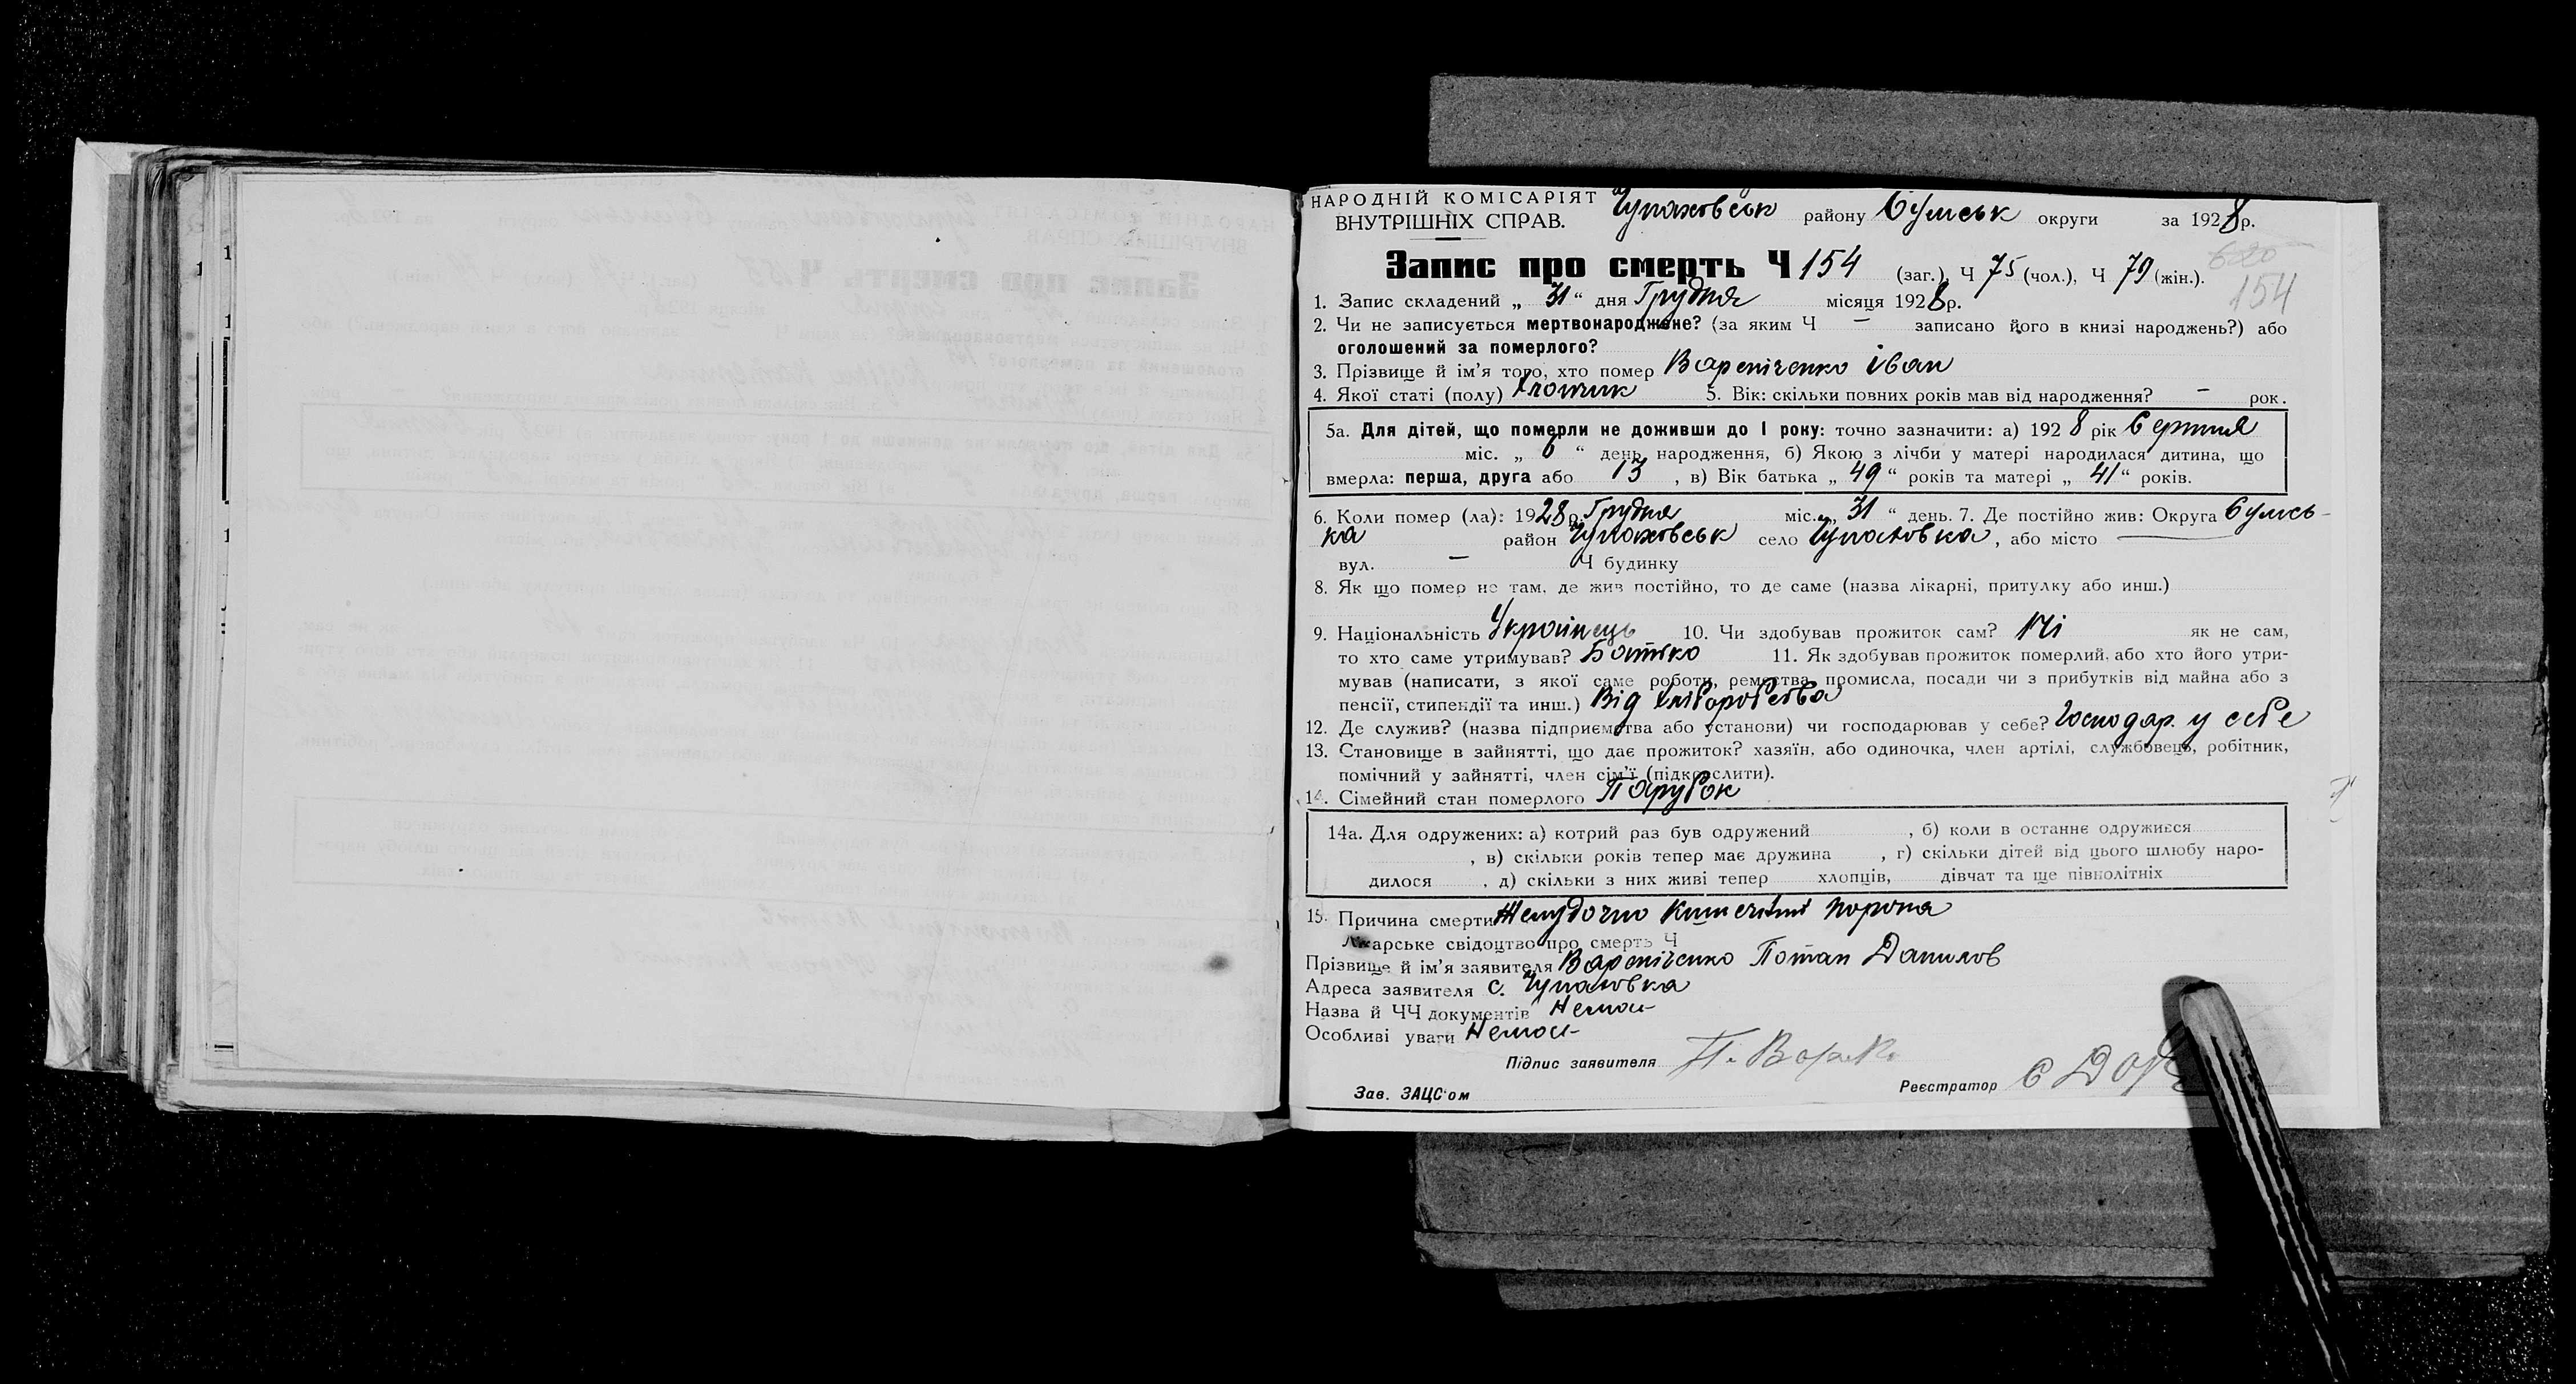 НАРОДНІЙ КОМІСАРІЯТ Чупахівськ району Сумськ округи за 1928 р.
ВНУТРІШНІХ СПРАВ.
Запис про смерть Ч 154 (заг.), Ч 75 (чол.), Ч 79 (жін.). 620
154
1. Запис складений „ 31 “ дня Грудня місяця 1928 р.
2. Чи не записується мертвонароджене? (за яким Ч — записано його в книзі народжень?) або
оголошений за померлого?
3. Прізвище й ім’я того, хто помер Іван
4. Якої статі (полу) Хлопчик 5. Вік: скільки повних років мав від народження? – рок.
5а. Для дітей, що померли не доживши до І року: точно зазначити: а) 1928 рік Серпня
міс. „ 6 “ день народження, б) Якою з лічби у матері народилася дитина, що
вмерла: перша, друга або 13 , в) Вік батька „ 49 “ років та матері „ 41 “ років.
6. Коли помер (ла): 1928 р. Грудня міс. „ 31 “ день. 7. Де постійно жив: Округа Сумсь-
ка район Чупахівськ село Чупахівка, або місто —
вул. — Ч будинку
8. Як що помер не там, де жив постійно, то де саме (назва лікарні, притулку або инш.)
9. Національність Українець 10. Чи здобував прожиток сам? Ні як не сам,
то хто саме утримував? Батько 11. Як здобував прожиток померлий, або хто його утри-
мував (написати, з якої саме роботи, ремества, промисла, посади чи з прибутків від майна або з
пенсії, стипендії та инш.) Від хліборобства
12. Де служив? (назва підприємства або установи) чи господарював у себе? Господар. у себе
13. Становище в зайнятті, що дає прожиток? хазяїн, або одиночка, член артілі, службовець, робітник,
помічний у зайнятті, член сім’ї (підкреслити).
14. Сімейний стан померлого Парубок
14а. Для одружених: а) котрий раз був одружений , б) коли в останнє одружився
, в) скільки років тепер має дружина , г) скільки дітей від цього шлюбу наро-
дилося , д) скільки з них живі тепер хлопців, дівчат та ще півнолітніх
15. Причина смерти Желудочно
Лікарське свідоцтво про смерть Ч
Прізвище й ім’я заявителя Потап Данилов
Адреса заявителя с. Чупахівка
Назва й ЧЧ документів Немає
Особливі уваги Немає
Підпис заявителя
Зав. ЗАЦС’ом Реєстратор